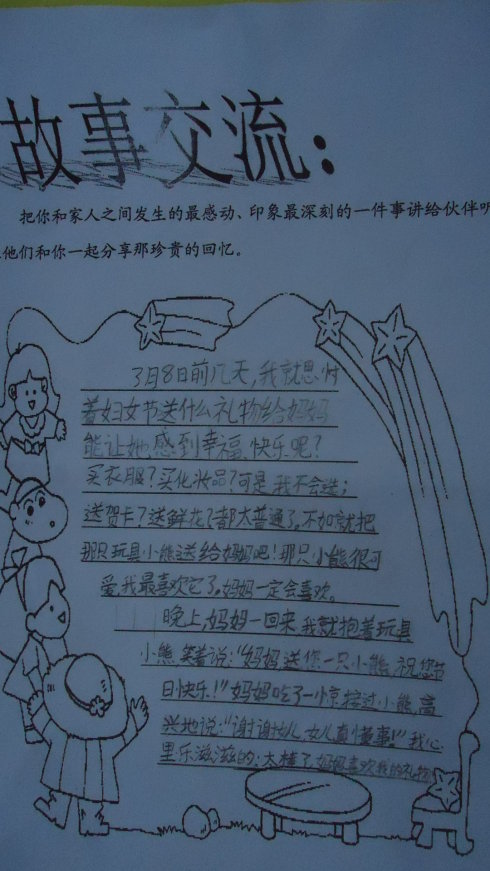 故事交流：
把你和家人之间发生的最感动、印象最深刻的一件事讲给伙伴听
他们和你一起分享那珍贵的回忆。
3月8日前几天，我就思忖
着妇女节送什么礼物给妈妈
能让她感到幸福、快乐呢？
买衣服？买化妆品？可是我不会选；
送贺卡？送鲜花？都太普通了。不如就把
那只玩具小熊送给妈妈吧！那只小熊很可
爱，我最喜欢它了。妈妈一定会喜欢。
晚上，妈妈一回来，我就抱着玩具
小熊，笑着说：“妈妈，送您一只小熊，祝您节
日快乐！”妈妈吃了一惊，接过小熊，高
兴地说：“谢谢女儿，女儿真懂事！”我心
里乐滋滋的：太棒了，妈妈喜欢我的礼物